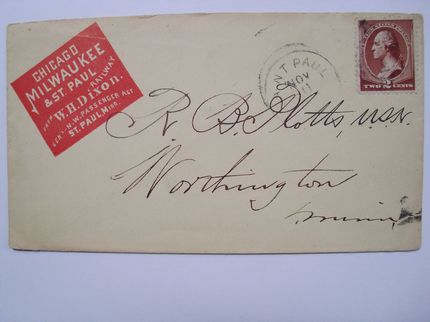 CHICAGO
MILWAUKEE
& ST. PAUL
RAILWAY
FROM
W.H. Dixon.
GEN'L N.W. PASSENGER AGT
ST. PAUL, MINN.
T PAUL
NOV
11
TWO 2 CENTS
R. B. Plotts, U.S.N.
Worthington
Minn